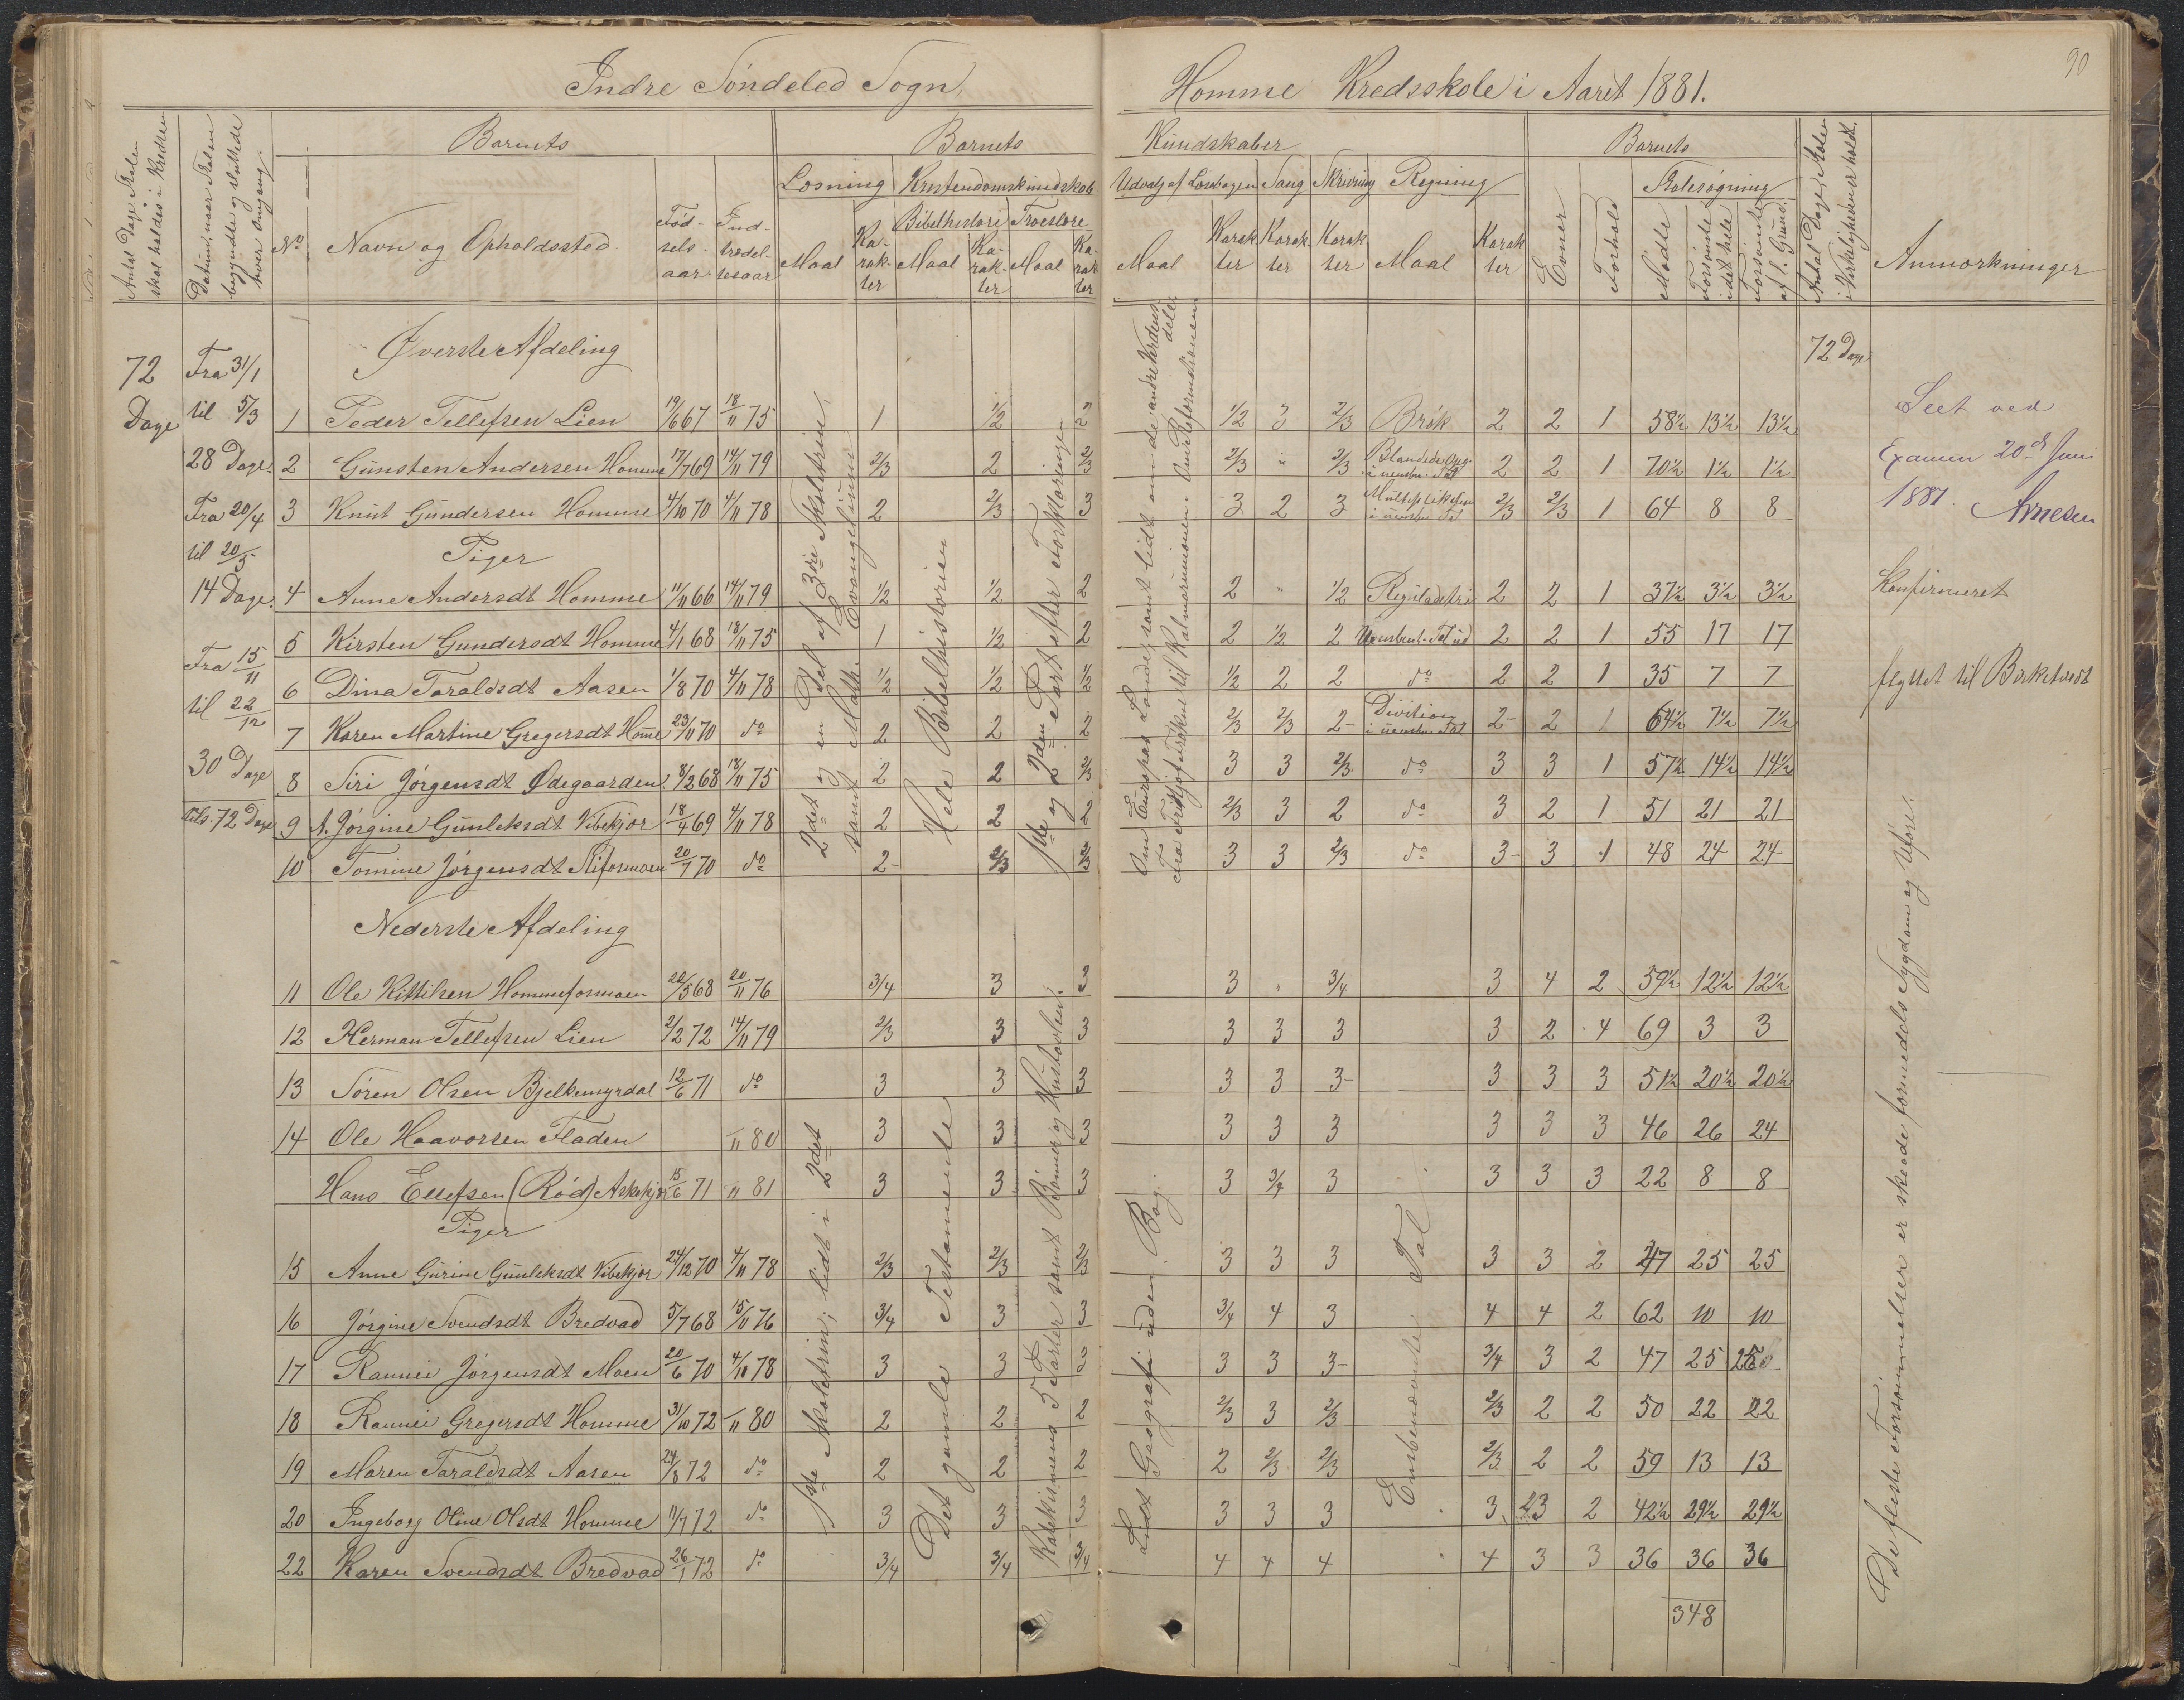 90
Indre Söndeled Sogn,
Homme Kredsskole i Aaret 1881.
Antal Dage Skolen skal holdes i Kredsen
Datum, naar Skolen begyndte og sluttede hver Omgang.
Barnets
Barnets
Kundskaber
Barnets
No
Navn og Opholdssted.
Fødselsaar
Indtrædelsesaar
Læsning
Kristendomskundskab
Udvalg af Læsebogen
Sang
Skrivning
Regning
Evner
Forhold
Skolesøgning
Bibelhistori
Troeslære
Maal
Karakter
Maal
Karakter
Maal
Karakter
Maal
Karakter
Karakter
Karakter
Maal
Karakter
Mødte
Forsømte i det hele
Forsømte af l. Grund.
Antal Dage Skolen i Virkeligheden er holdt.
Anmærkninger
Øverste Afdeling
72 Dage
Fra 31/1
til 5/3
28 Dage.
Fra 20/4
til 20/5
14 Dage.
Fra 15/11
til 22/12
30 Dage
tils. 72 Dage
72 Dage
1 Peder Tellefsen Lien 19/6 67 18/11 75 1 1/2 2 1/2 3 2/3 Brök 2 2 1 58½ 13½ 13½
2 Gunsten Andersen Homme 17/7 69 14/11 79 2/3 2 2/3 2/3 " 2/3 Blandede Opg. i uensbn. Tal 2 2 1 70½ 1½ 1½
3 Knut Gundersen Homme 4/10 70 4/11 78 2 2/3 3 3 2 3 Multiplikation i uensbn. Tal 2/3 2/3 1 64 8 8
Piger
4 Anne Andersdt Homme 11/11 66 14/11 79 1/2 1/2 2 2 " 1/2 Reguladetri 2 2 1 37½ 3½ 3½ Konfirmeret
5 Kirsten Gundersdt Homme 4/1 68 18/11 75 1 1/2 2 2 1/2 2 Uensbent. Tal ud 2 2 1 55 17 17
6 Dina Taraldsdt Aasen 1/8 70 4/11 78 1/2 1/2 1/2 1/2 2 2 do 2 2 1 35 7 7 flyttet til Birketvedt
7 Karen Martine Gregersdt Homme 23/11 70 do 2 2 2 2/3 2/3 2- Division i uensbn. Tal 2- 2 1 64½ 7½ 7½
8 Siri Jörgensdt Ødegaarden 8/2 68 18/11 75 2 2 2/3 3 3 2/3 do 3 3 1 57½ 14½ 14½
9 A. Jörgine Gunleksdt Vibekjær 18/4 69 4/11 78 2 2 2 2/3 3 2 do 3 2 1 51 21 21
10 Tomine Jörgensdt Stiformoen 20/7 70 do 2- 2/3 2/3 3 3 2/3 do 3- 3 1 48 24 24
2det og en Del af 3die Skoletrin, samt Math. Evangelium
Hele Bibelhistorien
1ste og 2den Part efter Forklaringen
Om Europas Lande, samt lidt om de andre Verdensdele.
Fra Fritjof Frækne til Kalmarunionen. Om Reformationen
Seet ved
Examen 20de Juni
1881. Arnesen
Nederste Afdeling
11 Ole Kittilsen Hommeformoen 22/5 68 20/11 76 3/4 3 3 3 " 3/4 3 4 2 59½ 12½ 12½
12 Herman Tellefsen Lien 2/2 72 14/11 79 2/3 3 3 3 3 3 3 2 4 69 3 3
13 Sören Olsen Bjelkemyrdal 12/6 71 do 3 3 3 3 3 3- 3 3 3 51½ 20½ 20½
14 Ole Haavorsen Fladen 11 80 3 3 3 3 3 3 3 3 3 46 26 24
Hans Ellefsen (Röd) Askekjær 15/6 71 11 81 3 3 3 3 3/4 3 3 3 3 22 8 8
Piger
15 Anne Gurine Gunleksdt Vibekjær 24/12 70 4/11 78 2/3 2/3 2/3 3 3 3 3 3 2 47 25 25
16 Jörgine Svendsdt Bredvad 5/7 68 15/11 76 3/4 3 3 3/4 4 3 4 4 2 62 10 10
17 Rannei Jörgensdt Moen 20/6 70 4/10 78 3 3 3 3 3 3- 3/4 3 2 47 25 25
18 Rannei Gregersdt Homme 31/10 72 11 80 2 2 2 2/3 3 2/3 2/3 2 2 50 22 22
19 Maren Taraldsdt Aasen 24/8 72 do 2 2 2 2 2/3 2/3 2/3 2 2 59 13 13
20 Ingeborg Oline Olsdt Homme 11/7 72 do 3 3 3 3 3 3 3 23 2 42½ 29½ 29½
22 Karen Svendsdt Bredvad 26/1 72 do 3/4 3/4 3/4 4 4 4 4 3 3 36 36 36
348
1ste Skoletrin; lidt i 2det
Det gamle Testamente
Katekismens 5 Parter samt Bönner og Hustavlen.
Lidt Geografi uden Bog.
Ensbenævnte Tal
De fleste Forsömmelser er skeede formedels Sygdom og Uföre.